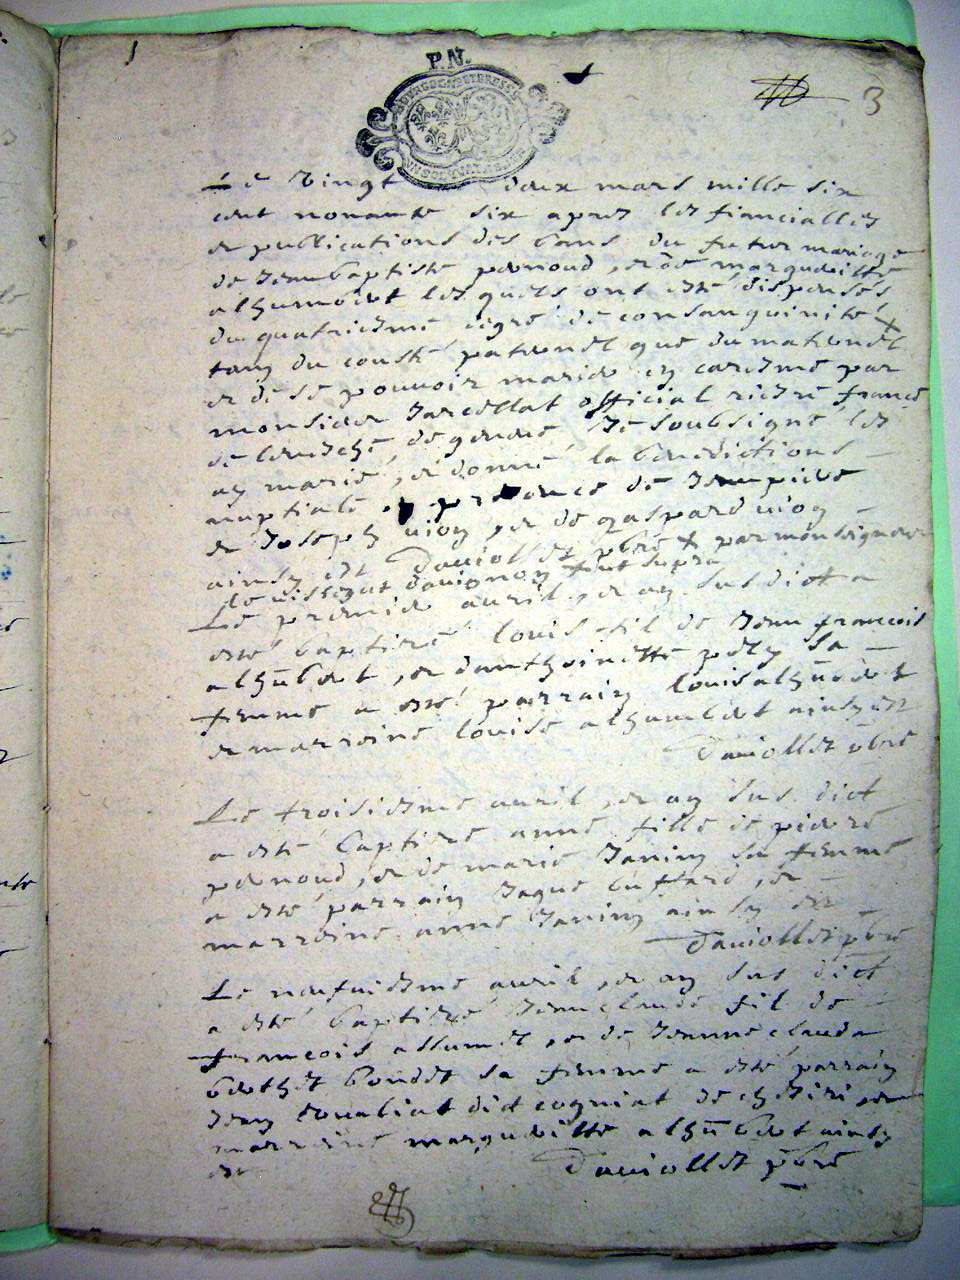 P.N.
3
Le vingt deux mars mille six
cent nonante six apres les fiancialles
et publications des bans du futur mariage
de Jean baptiste pernoud, et de margueritte
alhumbert lesquels ont esté dispensés
du quatriesme degré de consanguinité
tant du cousté paternel que du maternel
et de se pouvoir marier en caresme par
monsieur Jarcellat official riere france
de levesché de geneve Je soubsigné les
ay marié, et donné la benedictions
nuptiale en presence de Jean pierre
et Joseph vioy, et de gaspard vioy
ainsy est Daviollet pbre + par monseigneur
+ ut supra
Le premier avril, et an sus dict a
esté baptizé louis fil de Jean francois
alhūbert, et danthoinette poly sa
femme a esté parrain louis alhūbert
et marreine louise alhumbert ainsy est
Daviollet pbre
Le troisiesme avril, et an sus dict
a esté baptizé anne fille de pierre
pernoud, et de marie Janin sa femme
a esté parrain Jaque buttard, et
marreine anne Janin ainsy est
Daviollet pbre
Le neufviesme avril, et an sus dict
a esté baptizé Jean claude fil de
francois allumet, et de Jeanne clauda
berthet boudet sa femme a esté parrain
Jean dict cogniat de chesiri, et
marreine margueritte alhūbert ainsy
est Daviollet pbre